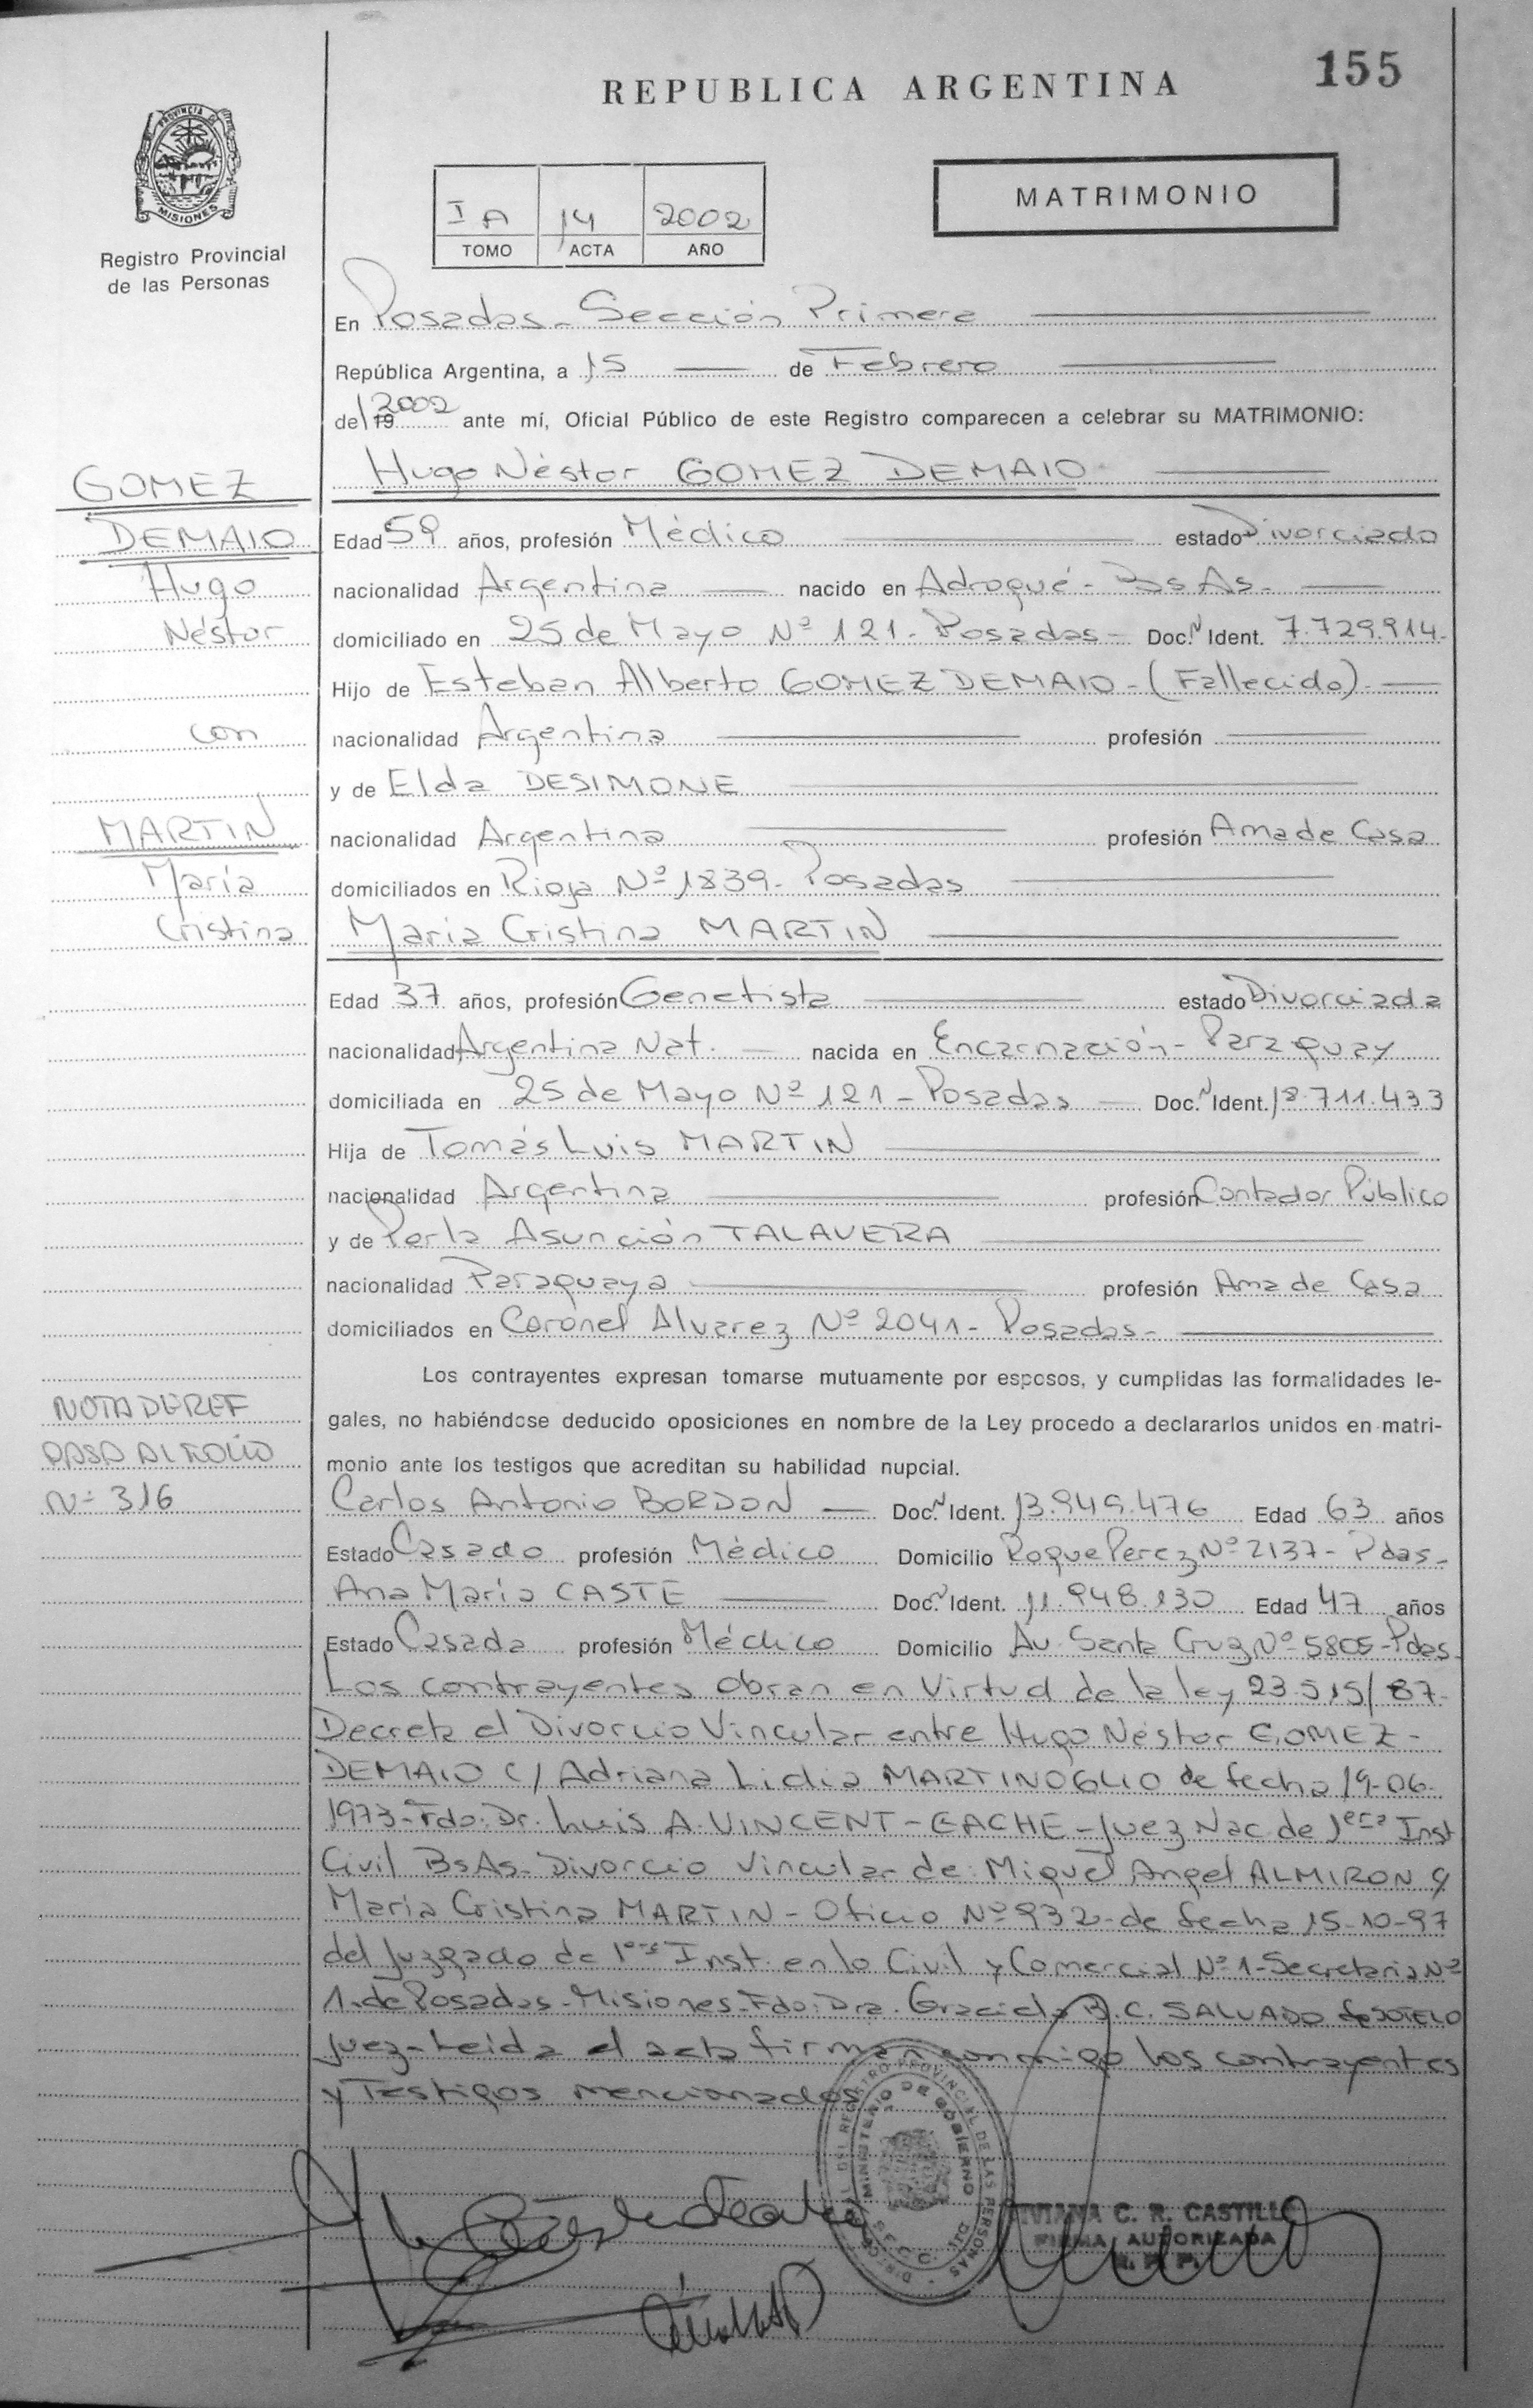 155
REPUBLICA ARGENTINA
PROVINCIA DE
MISIONES
Registro Provincial
de las Personas
MATRIMONIO
I A 14 2002
TOMO ACTA AÑO
En Posadas - Sección Primera
República Argentina, a 15 de Febrero
de 19 2002 ante mí, Oficial Público de este Registro comparecen a celebrar su MATRIMONIO:
GOMEZ
DEMAIO
Hugo
Néstor
con
MARTIN
María
Cristina
NOTA DE REF
PASA AL FOLIO
Nº 316
Hugo Néstor GOMEZ DEMAIO
Edad 59 años, profesión Médico estado Divorciado
nacionalidad Argentina nacido en Adrogué - Bs As.
domiciliado en 25 de Mayo Nº 121 - Posadas - Doc. N Ident. 7.729.914.
Hijo de Esteban Alberto GOMEZ DEMAIO - (Fallecido).
nacionalidad Argentina profesión
y de Elda DESIMONE
nacionalidad Argentina profesión Ama de Casa
domiciliados en Rioja Nº 1839 - Posadas
María Cristina MARTIN
Edad 37 años, profesión Genetista estado Divorciada
nacionalidad Argentina Nat. nacida en Encarnación - Paraguay
domiciliada en 25 de Mayo Nº 121 - Posadas Doc. N Ident. 18.711.433
Hija de Tomás Luis MARTIN
nacionalidad Argentina profesión Contador Público
y de Perla Asunción TALAVERA
nacionalidad Paraguaya profesión Ama de Casa
domiciliados en Coronel Alvarez Nº 2041 - Posadas -
Los contrayentes expresan tomarse mutuamente por esposos, y cumplidas las formalidades le-
gales, no habiéndose deducido oposiciones en nombre de la Ley procedo a declararlos unidos en matri-
monio ante los testigos que acreditan su habilidad nupcial.
Carlos Antonio BORDON Doc. N Ident. 13.949.476 Edad 63 años
Estado Casado profesión Médico Domicilio Roque Perez Nº 2137 - Pdas -
Ana María CASTE Doc. N Ident. 11.948.130 Edad 47 años
Estado Casada profesión Médico Domicilio Av. Santa Cruz Nº 5805 - Pdas
Los contrayentes obran en Virtud de la ley 23.515/87 -
Decreta el Divorcio Vincular entre Hugo Néstor GOMEZ -
DEMAIO c/ Adriana Lidia MARTINOGLIO de fecha 19-06-
1973 - Fdo: Dr. Luis A. VINCENT - GACHE - Juez Nac de 1era Inst
Civil Bs As - Divorcio Vincular de: Miguel Angel ALMIRON c/
María Cristina MARTIN - Oficio Nº 932 - de fecha 15-10-97
del Juzgado de 1era Inst. en lo Civil y Comercial Nº 1 - Secretaria Nº
1 - de Posadas - Misiones - Fdo: Dra. Graciela B. C. SALVADO de SOTELO
Juez - Leída el acta firman conmigo los contrayentes
y Testigos mencionados
VIVIANA C. R. CASTILLO
FIRMA AUTORIZADA
R. P. P.